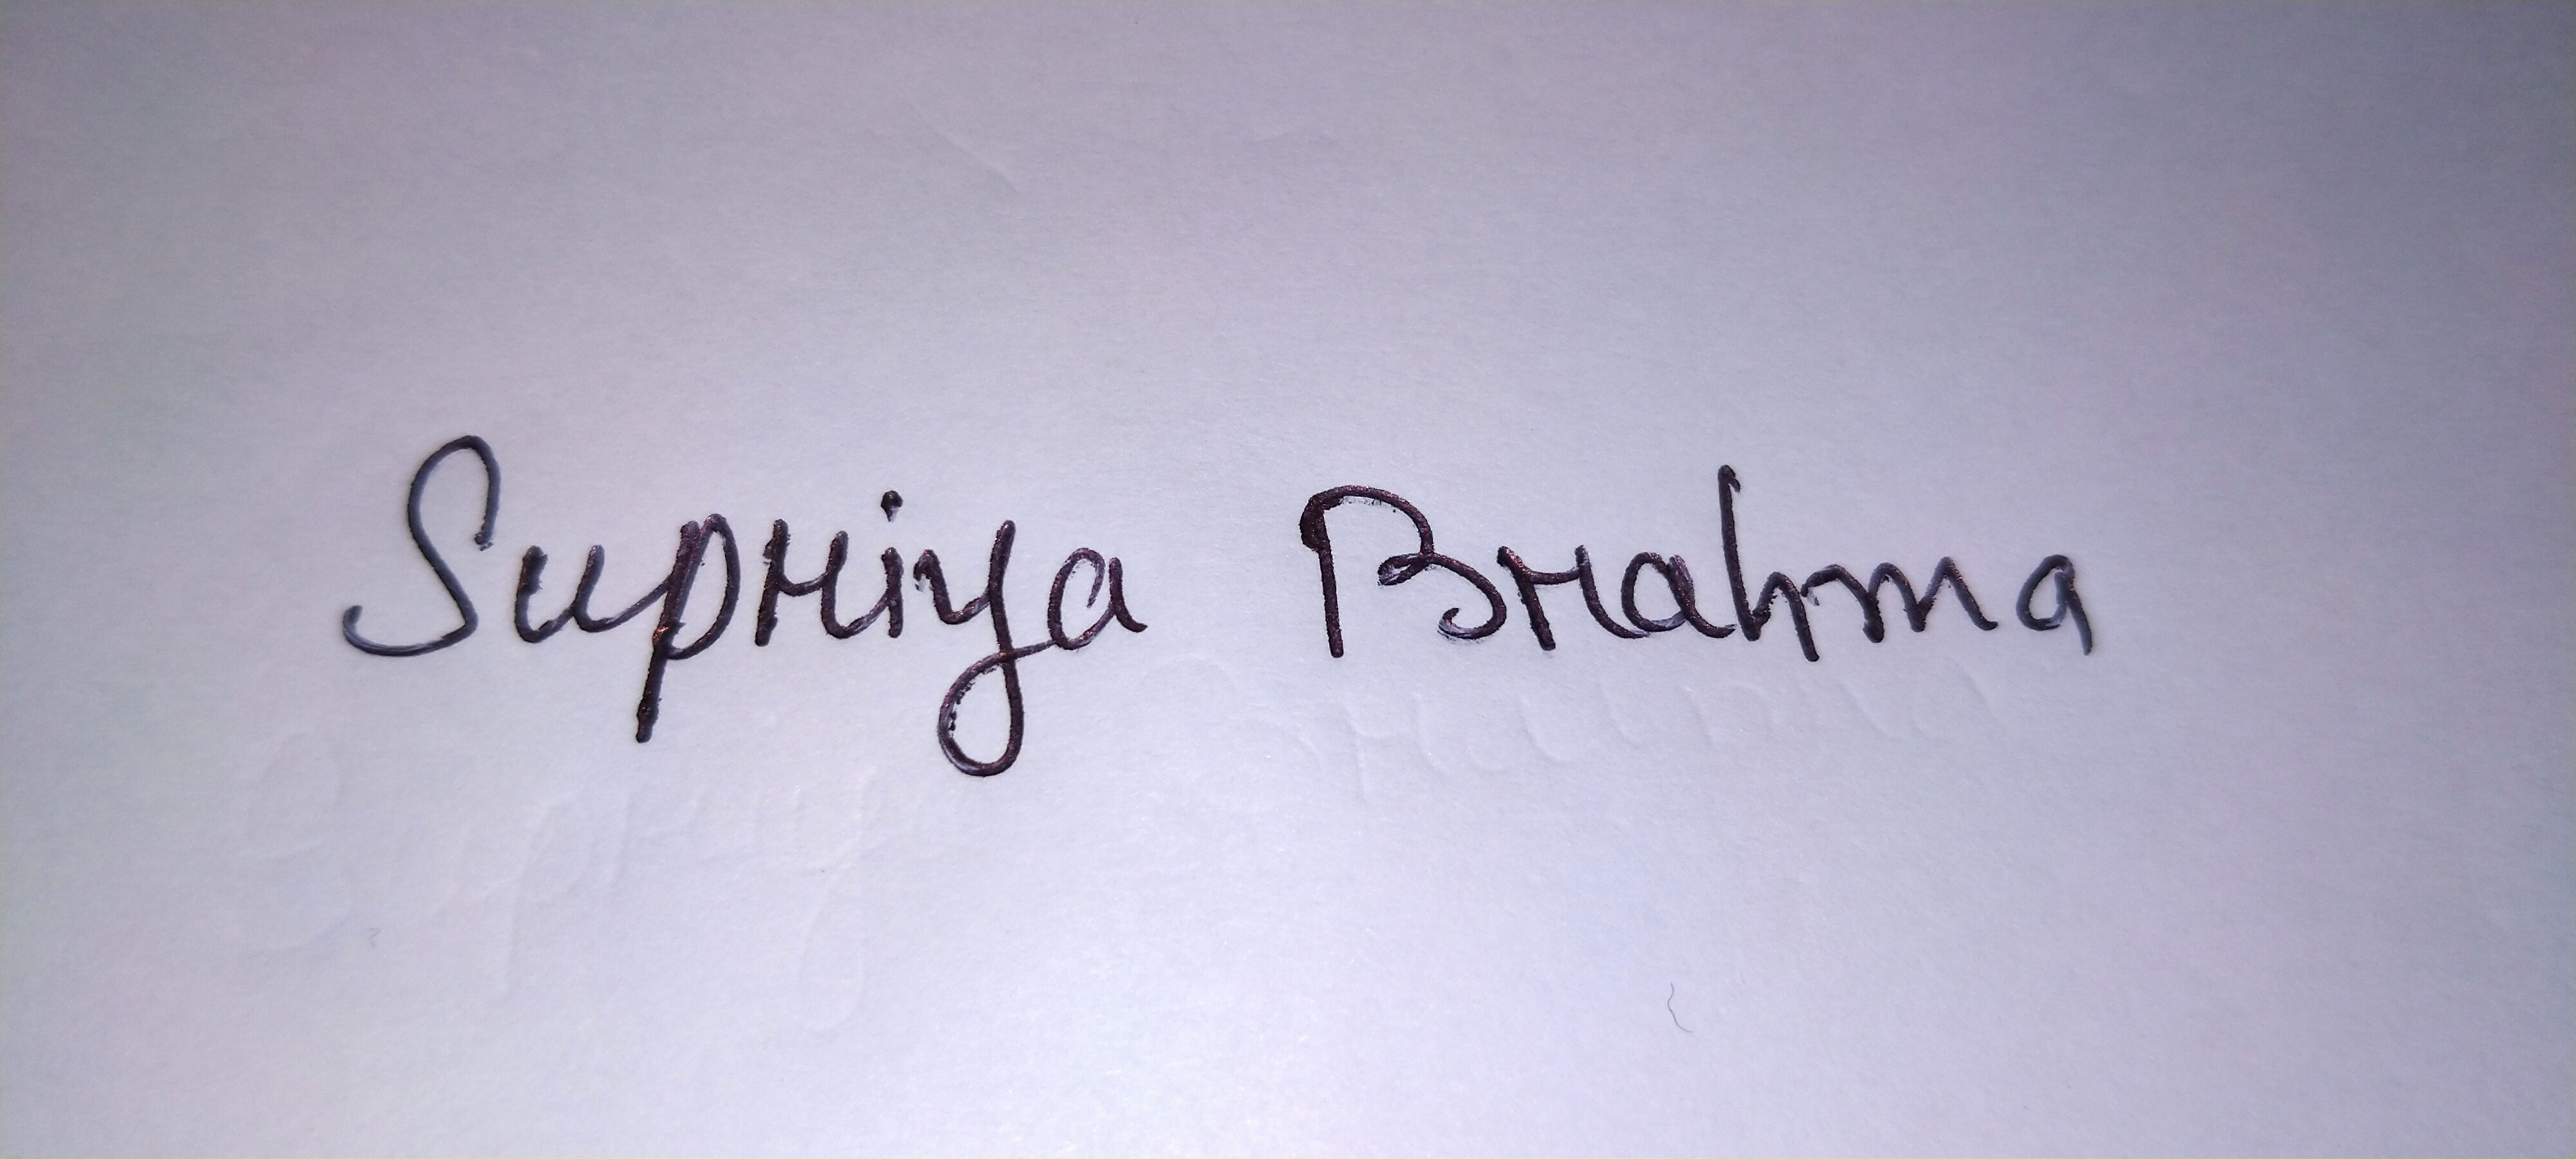 Supriya Brahma